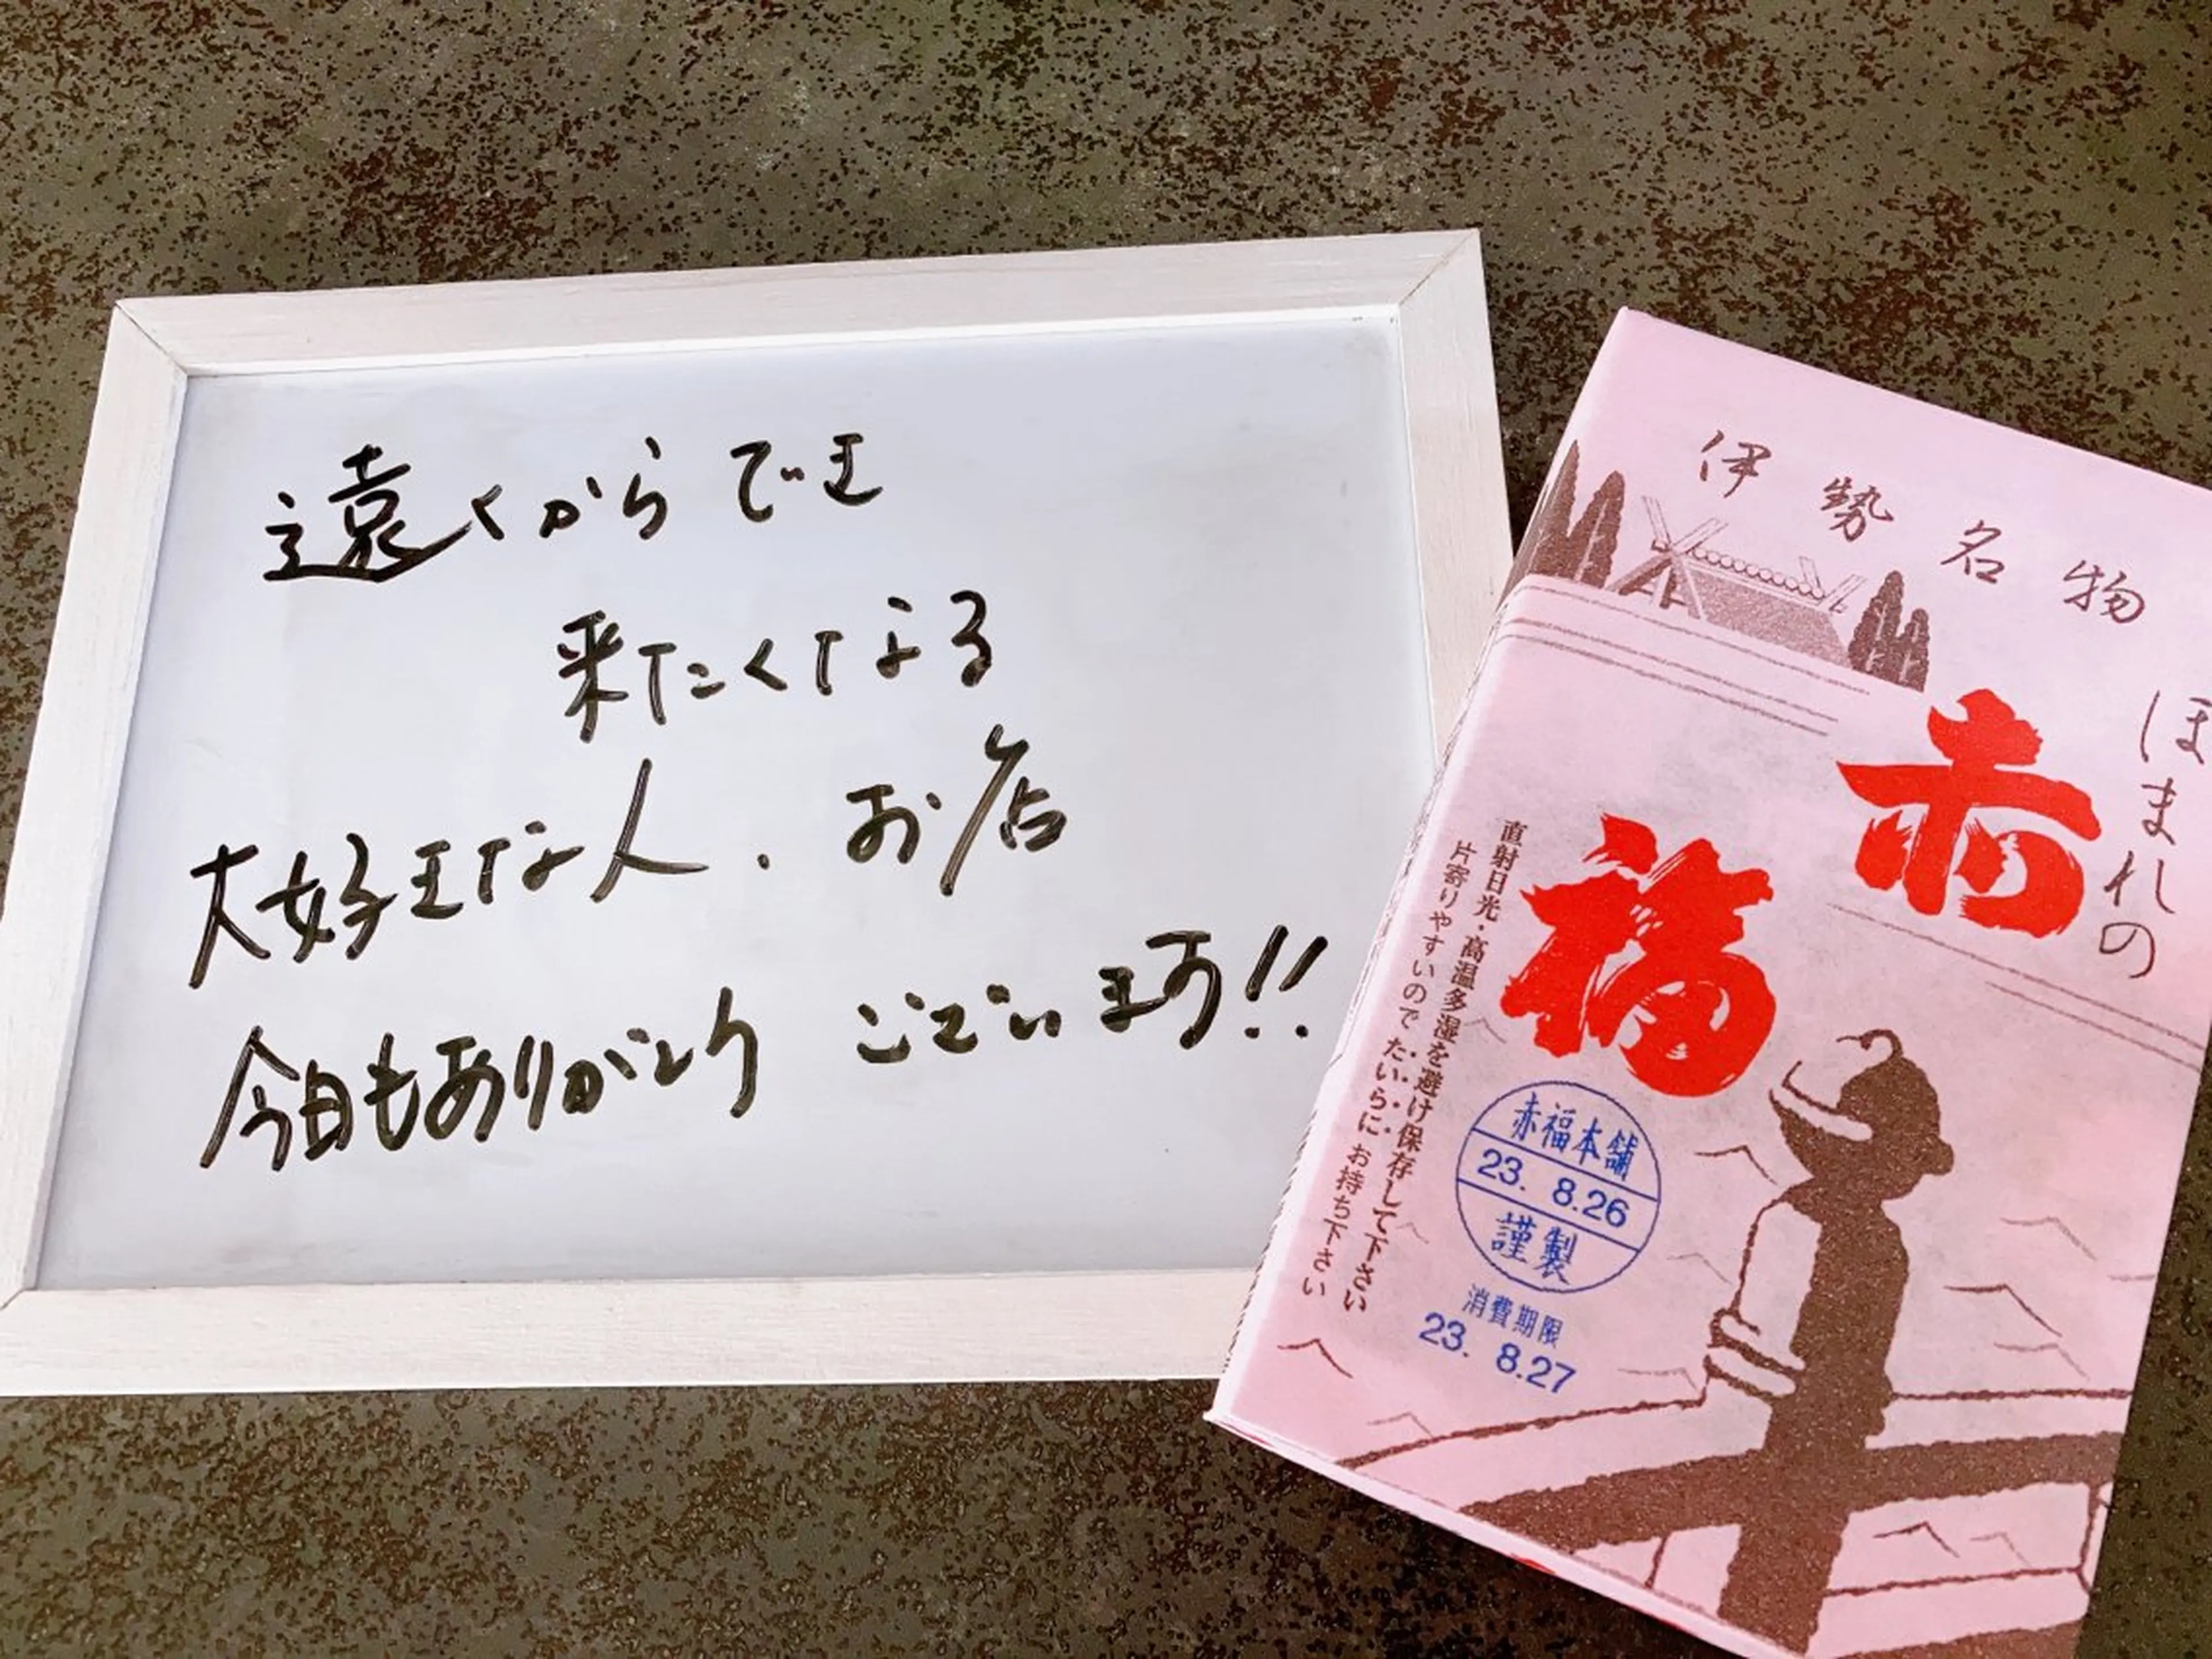 遠くからでも
来たくなる
大好きな人、お店
今日もありがとうございます!!
伊勢名物
ほまれの
赤福
直射日光・高温多湿を避け保存して下さい
片寄りやすいのでたいらにお持ち下さい
赤福本舗
23. 8.26
謹製
消費期限
23. 8.27